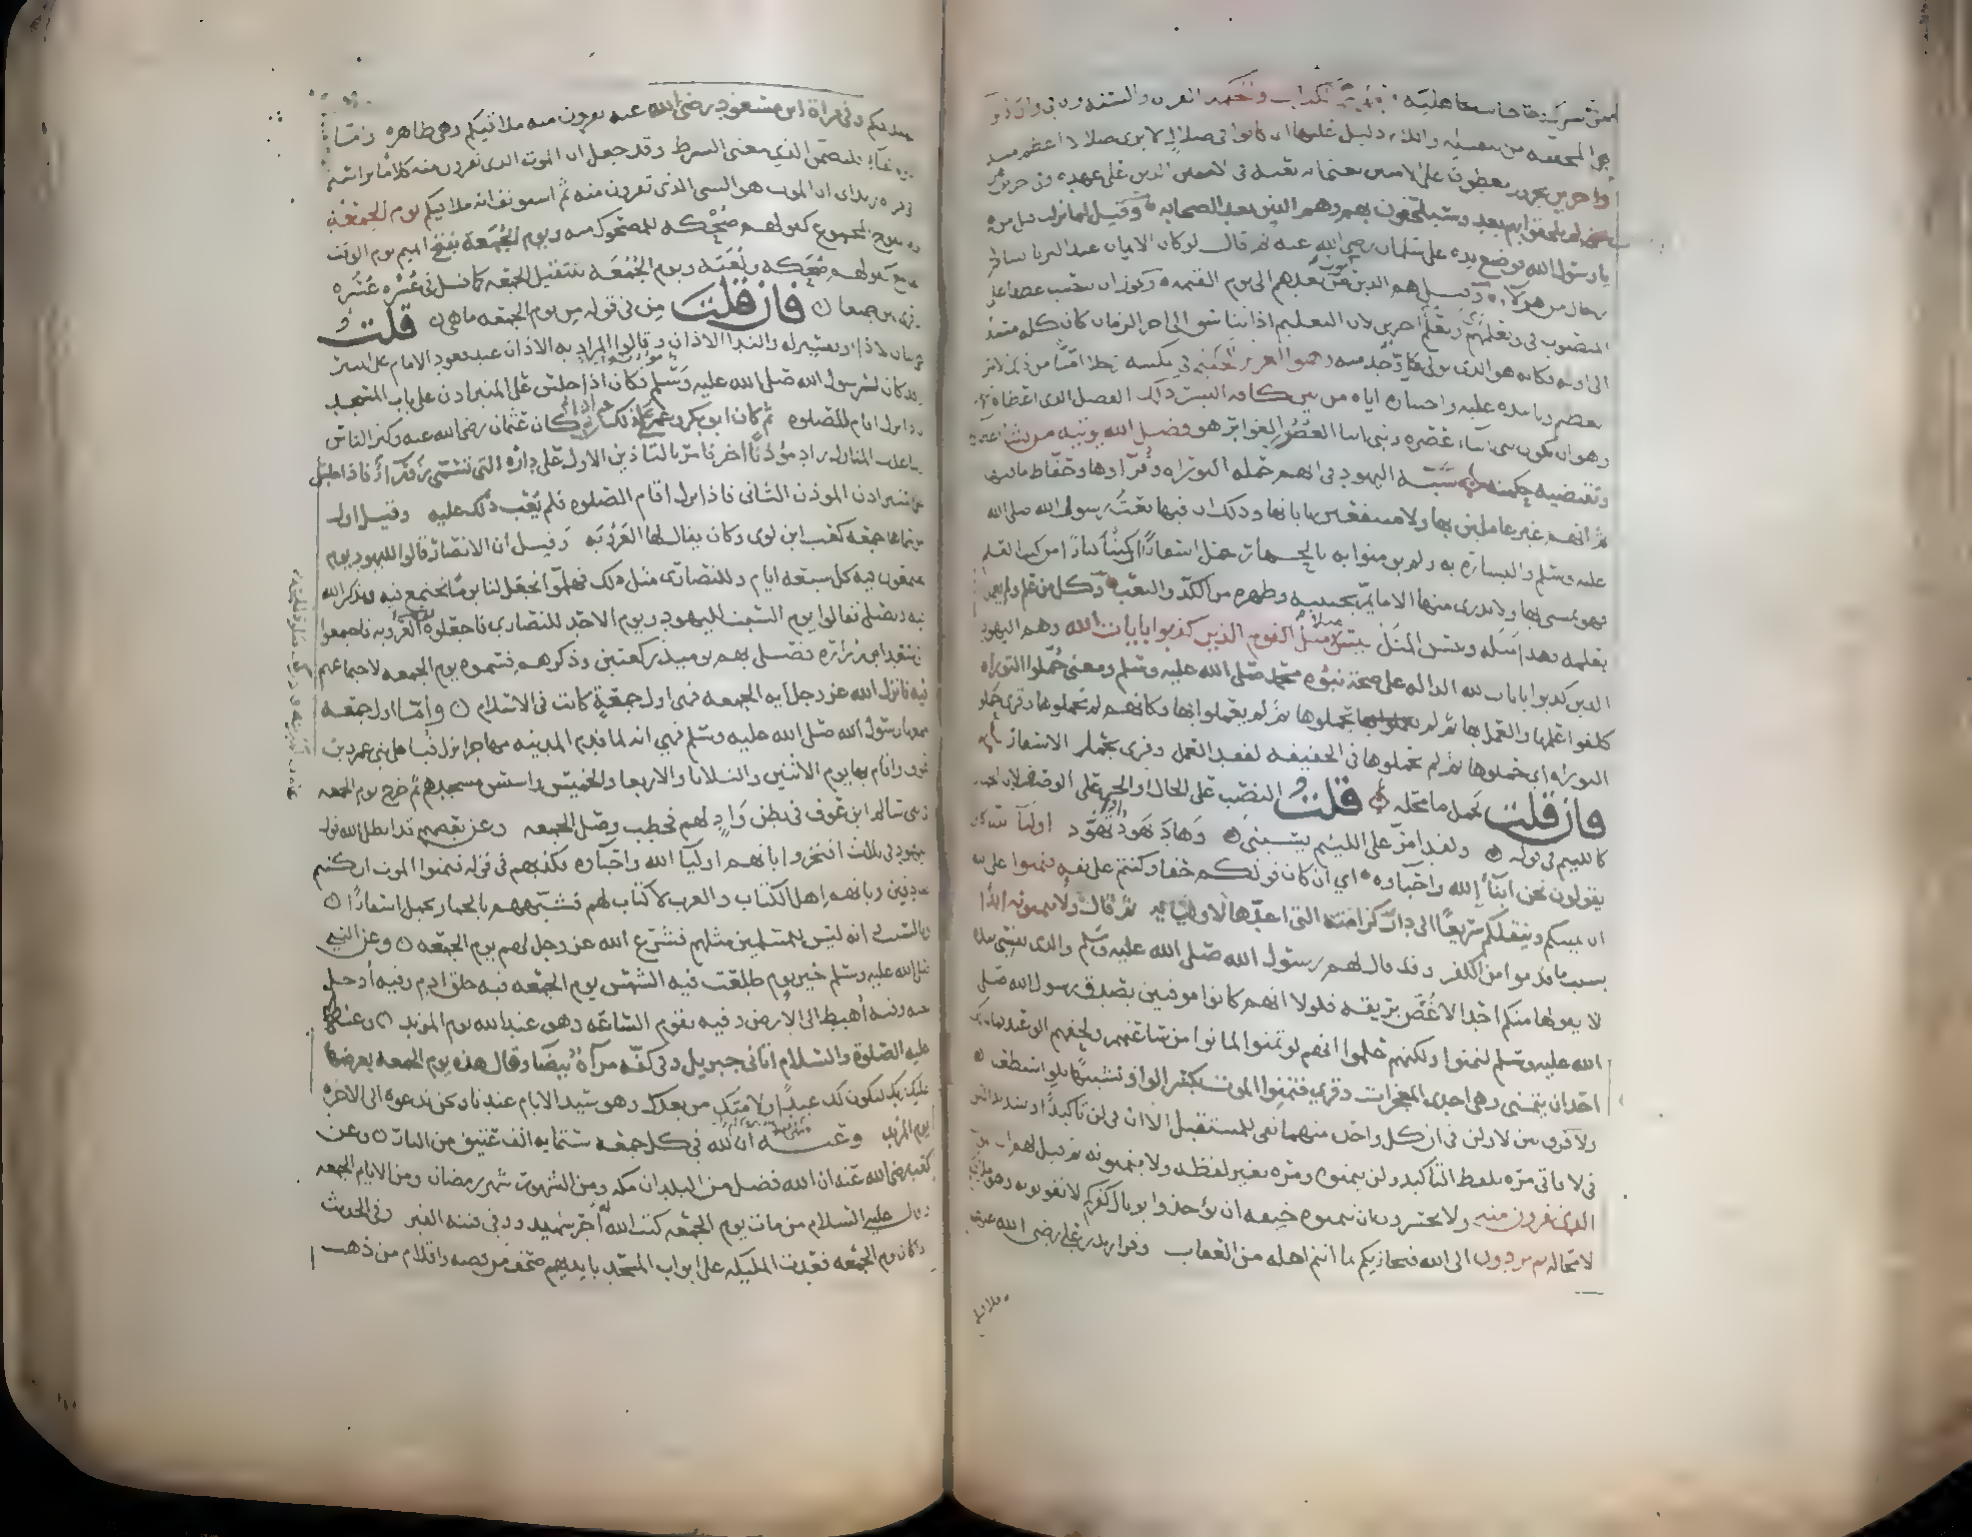 ويعلمهم الكتاب والحكمة القرآن والسنة وان في وان
هي المخففة من الثقيلة واللام دليل عليها اي كانوا في ضلال لا يرى ضلالا اعظم منه
وآخرين مجرور يعطف على الاميين يعني انه بعثه في الاميين الذين على عهده وفي آخرين
لم يلحقوا بهم بعد وسيلحقون بهم وهم الذين بعد الصحابه وقيل لما نزلت قيل من هم
يا رسول الله فوضع يده على سلمان رضي الله عنه ثم قال لو كان الايمان عند الثريا لتناوله
رجال من هؤلاء وقيل هم الذين ياتون من بعدهم الى يوم القيمه ويجوز ان ينتصب عطفا على
المنصوب في ويعلمهم اي ويعلم آخرين لان التعليم اذا تناسق الى آخر الزمان كان كله مستندا
الى اوله فكانه هو الذي تولى كل ما وجد منه وهو العزيز الحكيم في تمكينه رجلا اميا من ذلك الامر
العظيم وتاييده عليه واختياره اياه من بين كافه البشر ذلك الفضل الذي اعطاه
وهو ان يكون نبي ابناء عصره ونبي ابناء العصور الغوابر هو فضل الله يوتيه من يشاء
وتقتضيه حكمته شبه اليهود في انهم حمله التوراه وقراوها وحفاظ ما فيها
ثم انهم غير عاملين بها ولا منتفعين بآياتها وذلك ان فيها نعت رسول الله صلى الله
عليه وسلم والبشاره به ولم يومنوا به بالحمار حمل اسفارا اي كتبا كبارا من كتب العلم
فهو يمشي بها ولا يدري منها الا ما يمر بجنبيه وظهره من الكد والتعب وكل من علم ولم يعمل
بعلمه فهذا مثله وبئس المثل بئس مثلا مثل القوم الذين كذبوا بايات الله وهم اليهود
الذين كذبوا بايات الله الداله على صحة نبوة محمد صلى الله عليه وسلم ومعنى حملوا التوراه
كلفوا علمها والعمل بها ثم لم يحملوها ثم لم يعملوا بها فكانهم لم يحملوها وقرئ حملوا
التوراه اي حملوها ثم لم يحملوها في الحقيقه لفقد العمل وقرئ يحمل الاسفار
فان قلت يحمل ما محله قلت النصب على الحال او الجر على الوصف لان الحمار
كاللئيم في قوله ولقد امر على اللئيم يسبني هاد يهود اذا تهود اولياء لله كانوا
يقولون نحن ابناء الله واحباؤه اي ان كان قولكم حقا وكنتم على ثقه فتمنوا على الله
ان يميتكم وينقلكم سريعا الى دار كرامته التي اعدها لاوليائه ثم قال ولا يتمنونه ابدا
بسبب ما قدموا من الكفر وقد قال لهم رسول الله صلى الله عليه وسلم والذي نفسي بيده
لا يقولها منكم احد الا غص بريقه فلولا انهم كانوا موقنين بصدق رسول الله صلى
الله عليه وسلم لتمنوا ولكنهم علموا انهم لو تمنوا لماتوا من ساعتهم ولحقهم الوعيد
احد ان يتمنى وهي احدى المعجزات وقرئ فتمنوا الموت بكسر الواو تشبيها بلو استطعنا
ولا فرق بين لا ولن في ان كل واحد منهما نفي للمستقبل الا ان في لن تاكيدا وتشديدا ليس
في لا فاتى مره بلفظ التاكيد ولن يتمنوه ومره بغير لفظه ولا يتمنونه ثم قيل لهم ان الموت
الذي تفرون منه ولا تجسرون ان تتمنوه خيفه ان تؤخذوا بوبال كفركم لا تفوتونه وهو ملاقيكم
لا محاله ثم تردون الى الله فيجازيكم بما انتم اهله من العقاب وقرا زيد بن علي رضي الله عنه
ملاقيكم وفي قراة ابن مسعود رضي الله عنه تفرون منه ملاقيكم وهي ظاهره واما
فلتضمن الذي معنى الشرط وقد جعل ان الموت الذي تفرون منه كلاما براسه
في قراة زيد اي ان الموت هو الشي الذي تفرون منه ثم استونف انه ملاقيكم يوم الجمعه
يوم الفوج المجموع كقولهم ضحكه للمضحوك منه ويوم الجمعه بفتح الميم يوم الوقت
الجامع كقولهم ضحكه ولعنه ويوم الجمعه تثقيل الجمعه كما قيل في عسره عسره
وقرئ بهن جميعا فان قلت من في قوله من يوم الجمعه ما هي قلت
هي بيان لاذا وتفسير له والندا الاذان وقالوا المراد به الاذان عند قعود الامام على المنبر
وقد كان لرسول الله صلى الله عليه وسلم مؤذن واحد فكان اذا جلس على المنبر اذن على باب المسجد
فاذا نزل اقام للصلوه ثم كان ابو بكر وعمر على ذلك حتى اذا كان عثمان رضي الله عنه وكثر الناس
وتباعدت المنازل زاد مؤذنا آخر فامر بالتاذين الاول على داره التي تسمى زورآ فاذا جلس
على المنبر اذن الموذن الثاني فاذا نزل اقام الصلوه فلم يعب ذلك عليه وقيل اول
من سماها جمعه كعب ابن لوى وكان يقال لها العروبه وقيل ان الانصار قالوا لليهود يوم
يجتمعون فيه كل سبعه ايام وللنصارى مثل ذلك فهلموا نجعل لنا يوما نجتمع فيه ونذكر الله
فيه ونصلي فقالوا يوم السبت لليهود ويوم الاحد للنصارى فاجعلوه يوم العروبه فاجتمعوا
الى سعد ابن زراره فصلى بهم يوميذ ركعتين وذكرهم فسموه يوم الجمعه لاجتماعهم
فيه فانزل الله عز وجل آيه الجمعه فهي اول جمعه كانت في الاسلام واما اول جمعه
جمعها رسول الله صلى الله عليه وسلم فهي انه لما قدم المدينه مهاجرا نزل قبا على بني عمرو بن
عوف واقام بها يوم الاثنين والثلاثا والاربعا والخميس واسس مسجدهم ثم خرج يوم الجمعه
بني سالم ابن عوف في بطن واد لهم فخطب وصلى الجمعه وعن بعضهم قد ابطل الله قول
اليهود في ثلاث افتخروا بانهم اوليآ الله واحباؤه فكذبهم في قوله فتمنوا الموت ان كنتم
صادقين وبانهم اهل الكتاب والعرب لا كتاب لهم فشبههم بالحمار يحمل اسفارا
وبالسبت انه ليس للمسلمين مثلهم فشرع الله عز وجل لهم يوم الجمعه وعن النبي
صلى الله عليه وسلم خير يوم طلعت فيه الشمس يوم الجمعه فيه خلق ادم وفيه أدخل
الجنه وفيه أهبط الى الارض وفيه تقوم الساعه وهو عند الله يوم المزيد وعنه
عليه الصلوة والسلام اتاني جبريل وفي كفه مرآة بيضا وقال هذه يوم الجمعه يعرضها
عليك ربك لتكون لك عيدا ولامتك من بعدك وهو سيد الايام عندنا ونحن ندعوه الى الاخره
يوم المزيد وعنه ان لله في كل جمعه ستمايه الف عتيق من النار وعن
كعب رضي الله عنه ان الله فضل من البلدان مكه ومن الشهور شهر رمضان ومن الايام الجمعه
وقال عليه السلام من مات يوم الجمعه كتب الله له اجر شهيد ووقي فتنه القبر وفي الحديث
اذا كان يوم الجمعه قعدت المليكه على ابواب المسجد بايديهم صحف من فضه واقلام من ذهب